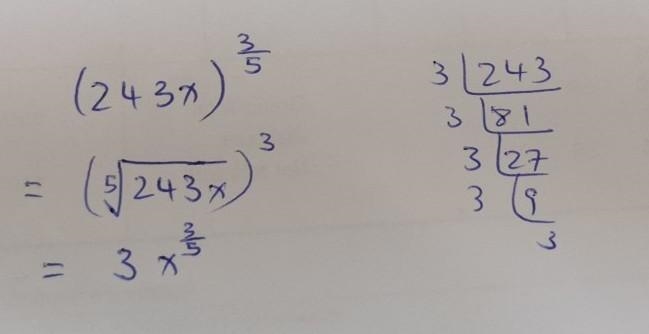 (243x)^(3/5)
= (⁵√243x)^3
= 3 x^(3/5)
3 | 243
3 | 81
3 | 27
3 | 9
3